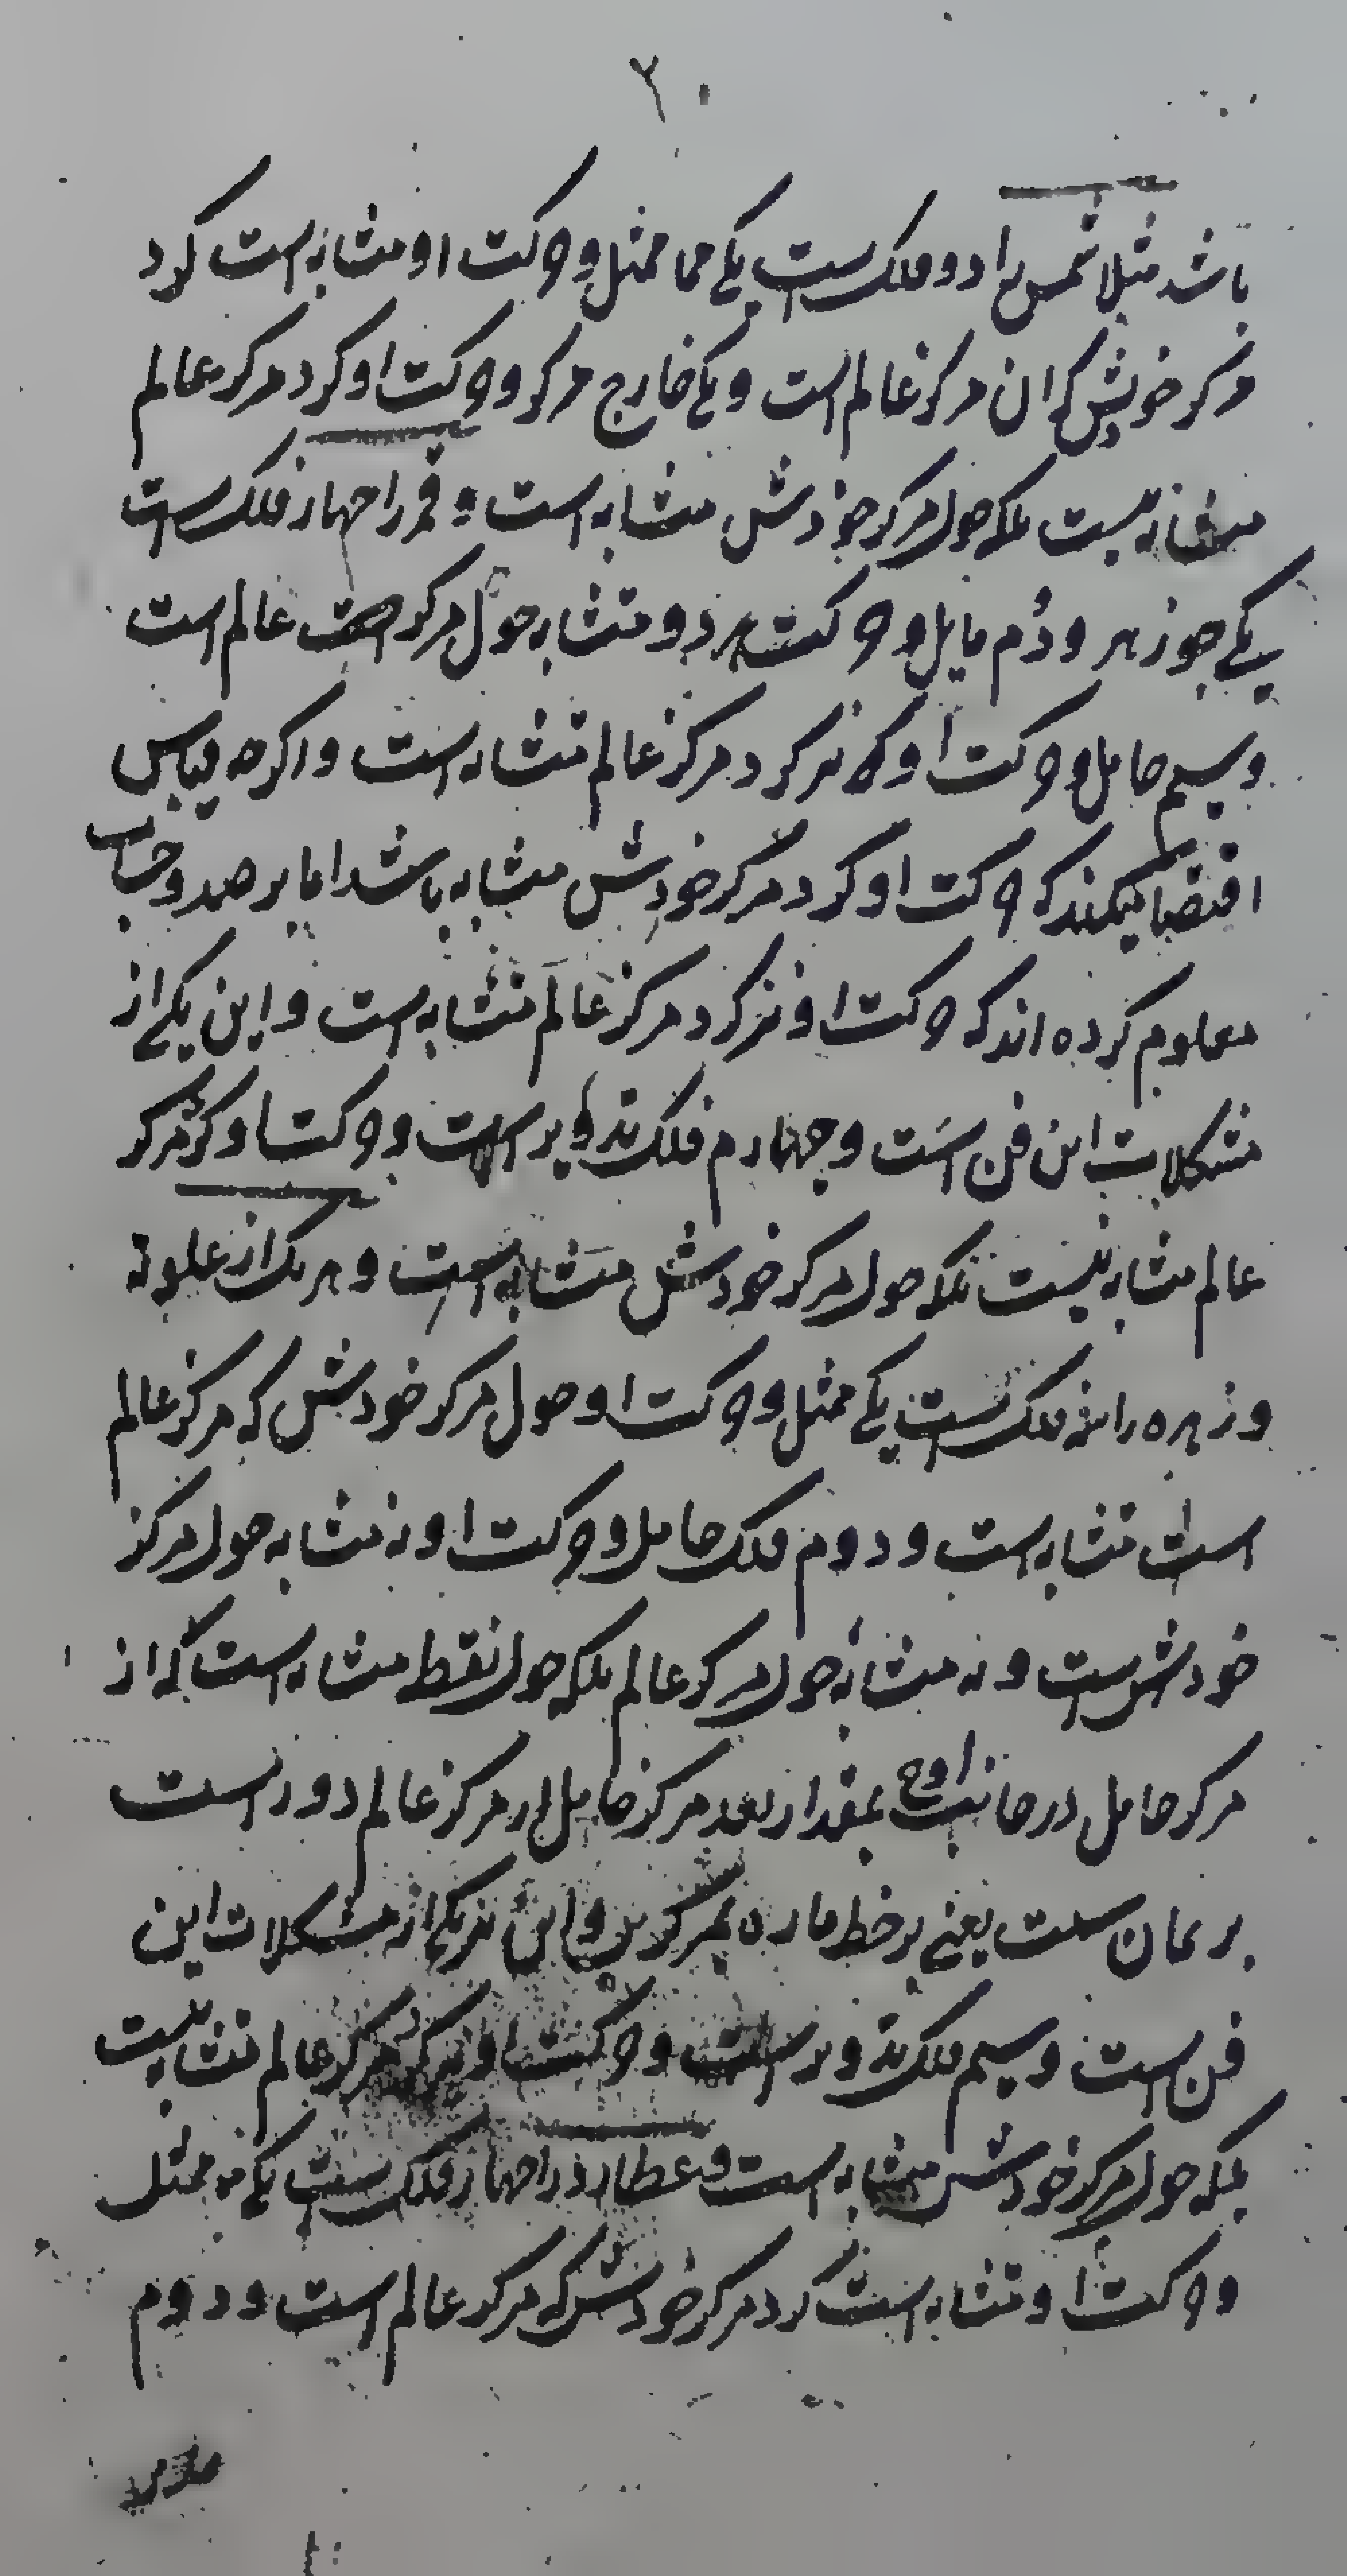 ۲۰
باشد مثلا شمس را دو فلک است یکی مما ممثل و حرکت او متشابه است گرد
مرکز خویش که ان مرکز عالم است و یکی خارج مرکز و حرکت او گرد مرکز عالم
متشابه نیست بلکه حول مرکز خودش متشابه است و قمر را چهار فلک است
یکی جوزهر و دُم مایل و حرکت هر دو متشابه حول مرکز عالم است
و سیم حامل و حرکت او که نیز گرد مرکز عالم متشابه است و اگر چه قیاس
اقتضا میکند که حرکت او گرد مرکز خودش متشابه باشد اما برصد و حساب
معلوم کرده اند که حرکت او نیز گرد مرکز عالم متشابه است و این یکی از
مشکلات این فن است و چهارم فلک تدویر است و حرکت او گرد مرکز
عالم متشابه نیست بلکه حول مرکز خودش متشابه است و هر یک از علویة
و زهره را سه فلک است یکی ممثل و حرکت او حول مرکز خودش که مرکز عالم
است متشابه است و دوم فلک حامل و حرکت او نه متشابه حول مرکز
خودش است و نه متشابه حول مرکز عالم بلکه حول نقطه متشابه است که از
مرکز حامل در جانب اوج بمقدار بعد مرکز حامل از مرکز عالم دور است
بر همان سمت یعنی بر خط ماره بمرکزین و این نیز یکی از مشکلات این
فن است و سیم فلک تدویر است و حرکت او نیز گرد مرکز عالم متشابه نیست
بلکه حول مرکز خودش متشابه است و عطارد را چهار فلک است یکی ممثل
و حرکت او متشابه است گرد مرکز خودش که مرکز عالم است و دوم